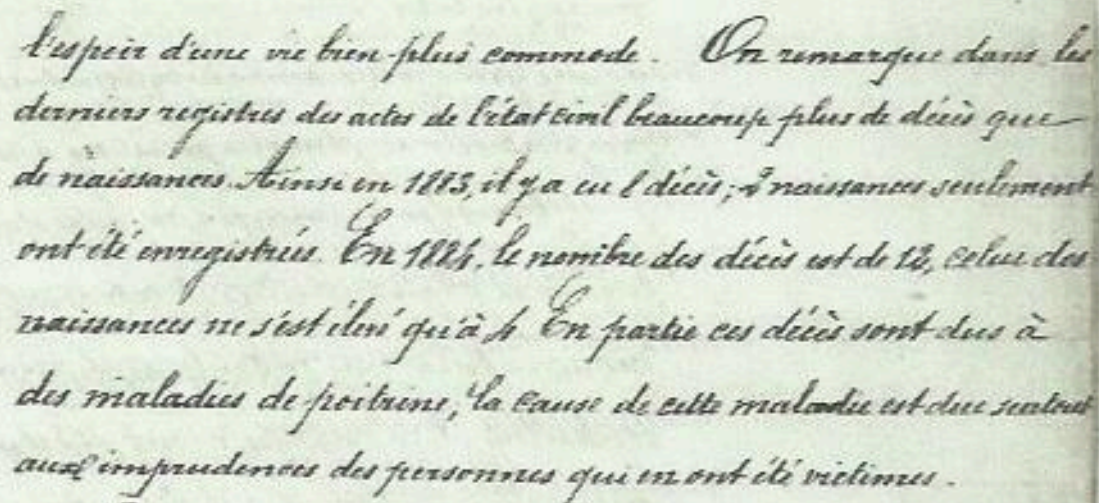 l'espoir d'une vie bien plus commode. On remarque dans les
derniers registres des actes de l'état civil beaucoup plus de décès que
de naissances. Ainsi en 1883, il y a eu 8 décès ; 2 naissances seulement
ont été enregistrées. En 1884, le nombre des décès est de 12, celui des
naissances ne s'est élevé qu'à 4. En partie ces décès sont dus à
des maladies de poitrine, la cause de cette maladie est due surtout
aux imprudences des personnes qui en ont été victimes.